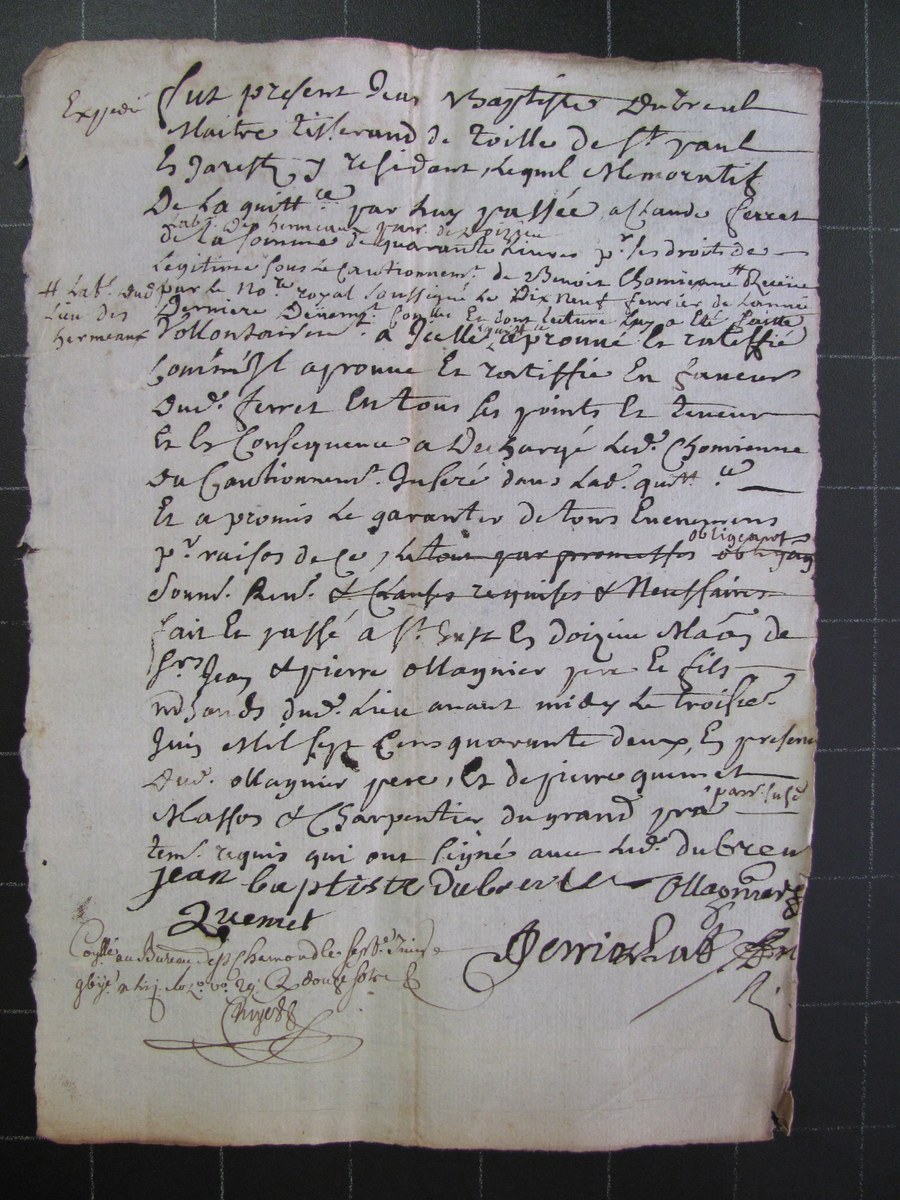 Expedié
fut present Jean Baptiste Dubreul
Maitre tisserand de toille de St. paul
En Jarestz y residant, Lequel Memoratif
De La quittce. par luy passée a Claude ferret
Labr. des hermeaux parr. de doizieu
de la somme de quarante Livres pr. ses droits de
Legitime sous Le Cautionnemt. de Benoit Chomienne # Receüe
# Labr. dud.
Lieu des
hermeaux
par le Nore. royal soussigné Le Dix Neuf fevrier de Lannée
Derniere Deüemt. Contlee Et dont Lecture Luy a Eté faitte
Vollontairemt. a Jcelle quittce aprouvé Et ratiffié
Comme Jl aprouve Et ratiffie En faveur
Dud. ferret En tous ses points Et teneur
Et En Consequence a Dechargé Led. Chomienne
Du Cautionnemt. Inseré dans Lad. quittce.
Et a promis Le garantir de tous Evenemens
pr. raison de Ce, Le tout par promesses obligeant
Soum. Ren. & Clauses requises & Necessaires
fait Et passé a St. Just En doizieu Maison de
Srs. Jean & pierre Ollagnier pere Et fils
mrchands dud. Lieu avant midy Le troisie.
Juin Mil sept Cens quarante deux, En presence
Dud. Ollagnier pere, Et de pierre quemet
Masson & Charpentier du grand pra parr. susde
tem. requis qui ont signé avec Led. dubreu
jean baptiste Dubreul Ollagnier
Quemet
Perrichat
Conllé au Bureau de St Chamond le sept. Juin
douze sols